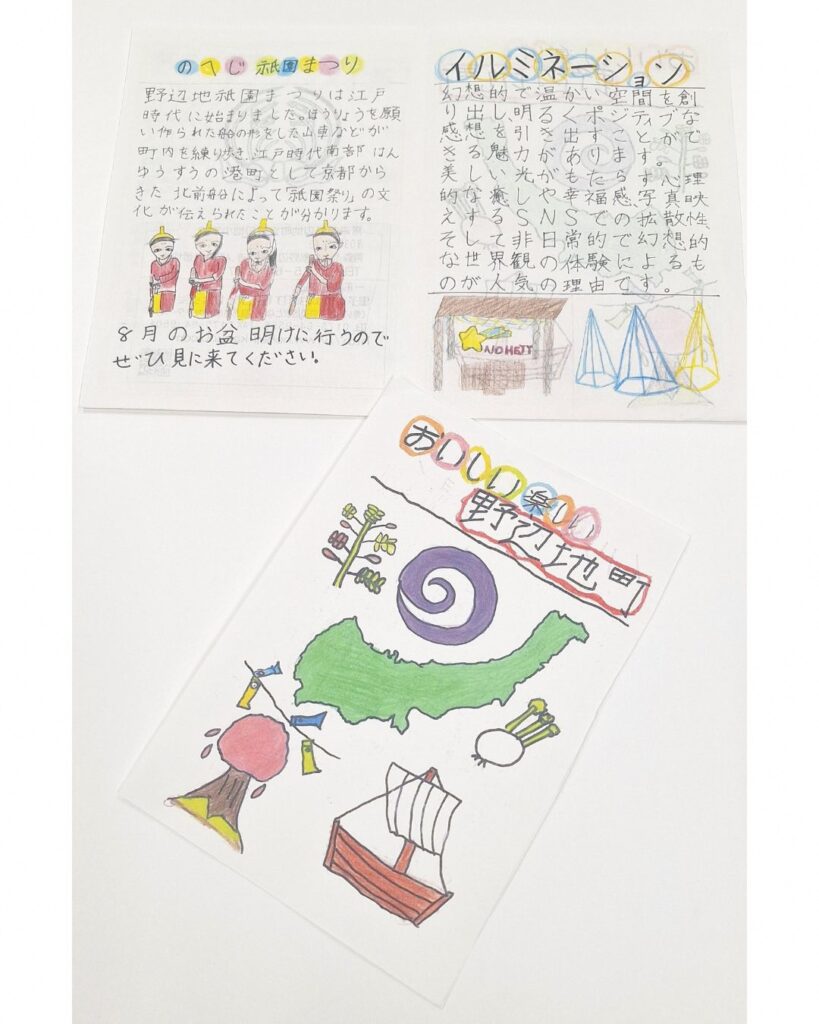 のへじ 祇園まつり
野辺地祇園まつりは江戸
時代に始まりました。ほうりょうを願
い作られた船の形をした山車などが
町内を練り歩き、江戸時代南部はん
ゆうすうの港町として京都から
きた北前船によって「祇園祭り」の文
化が伝えられたことが分かります。
8月のお盆明けに行うので
ぜひ見に来てください。
イルミネーション
幻想的で温かい空間を創
り出し明るくポジティブな
感想を引き出すことがで
きる魅力があります。心理
のが人気の理由です。
NOHEJI
おいしい楽しい
野辺地町